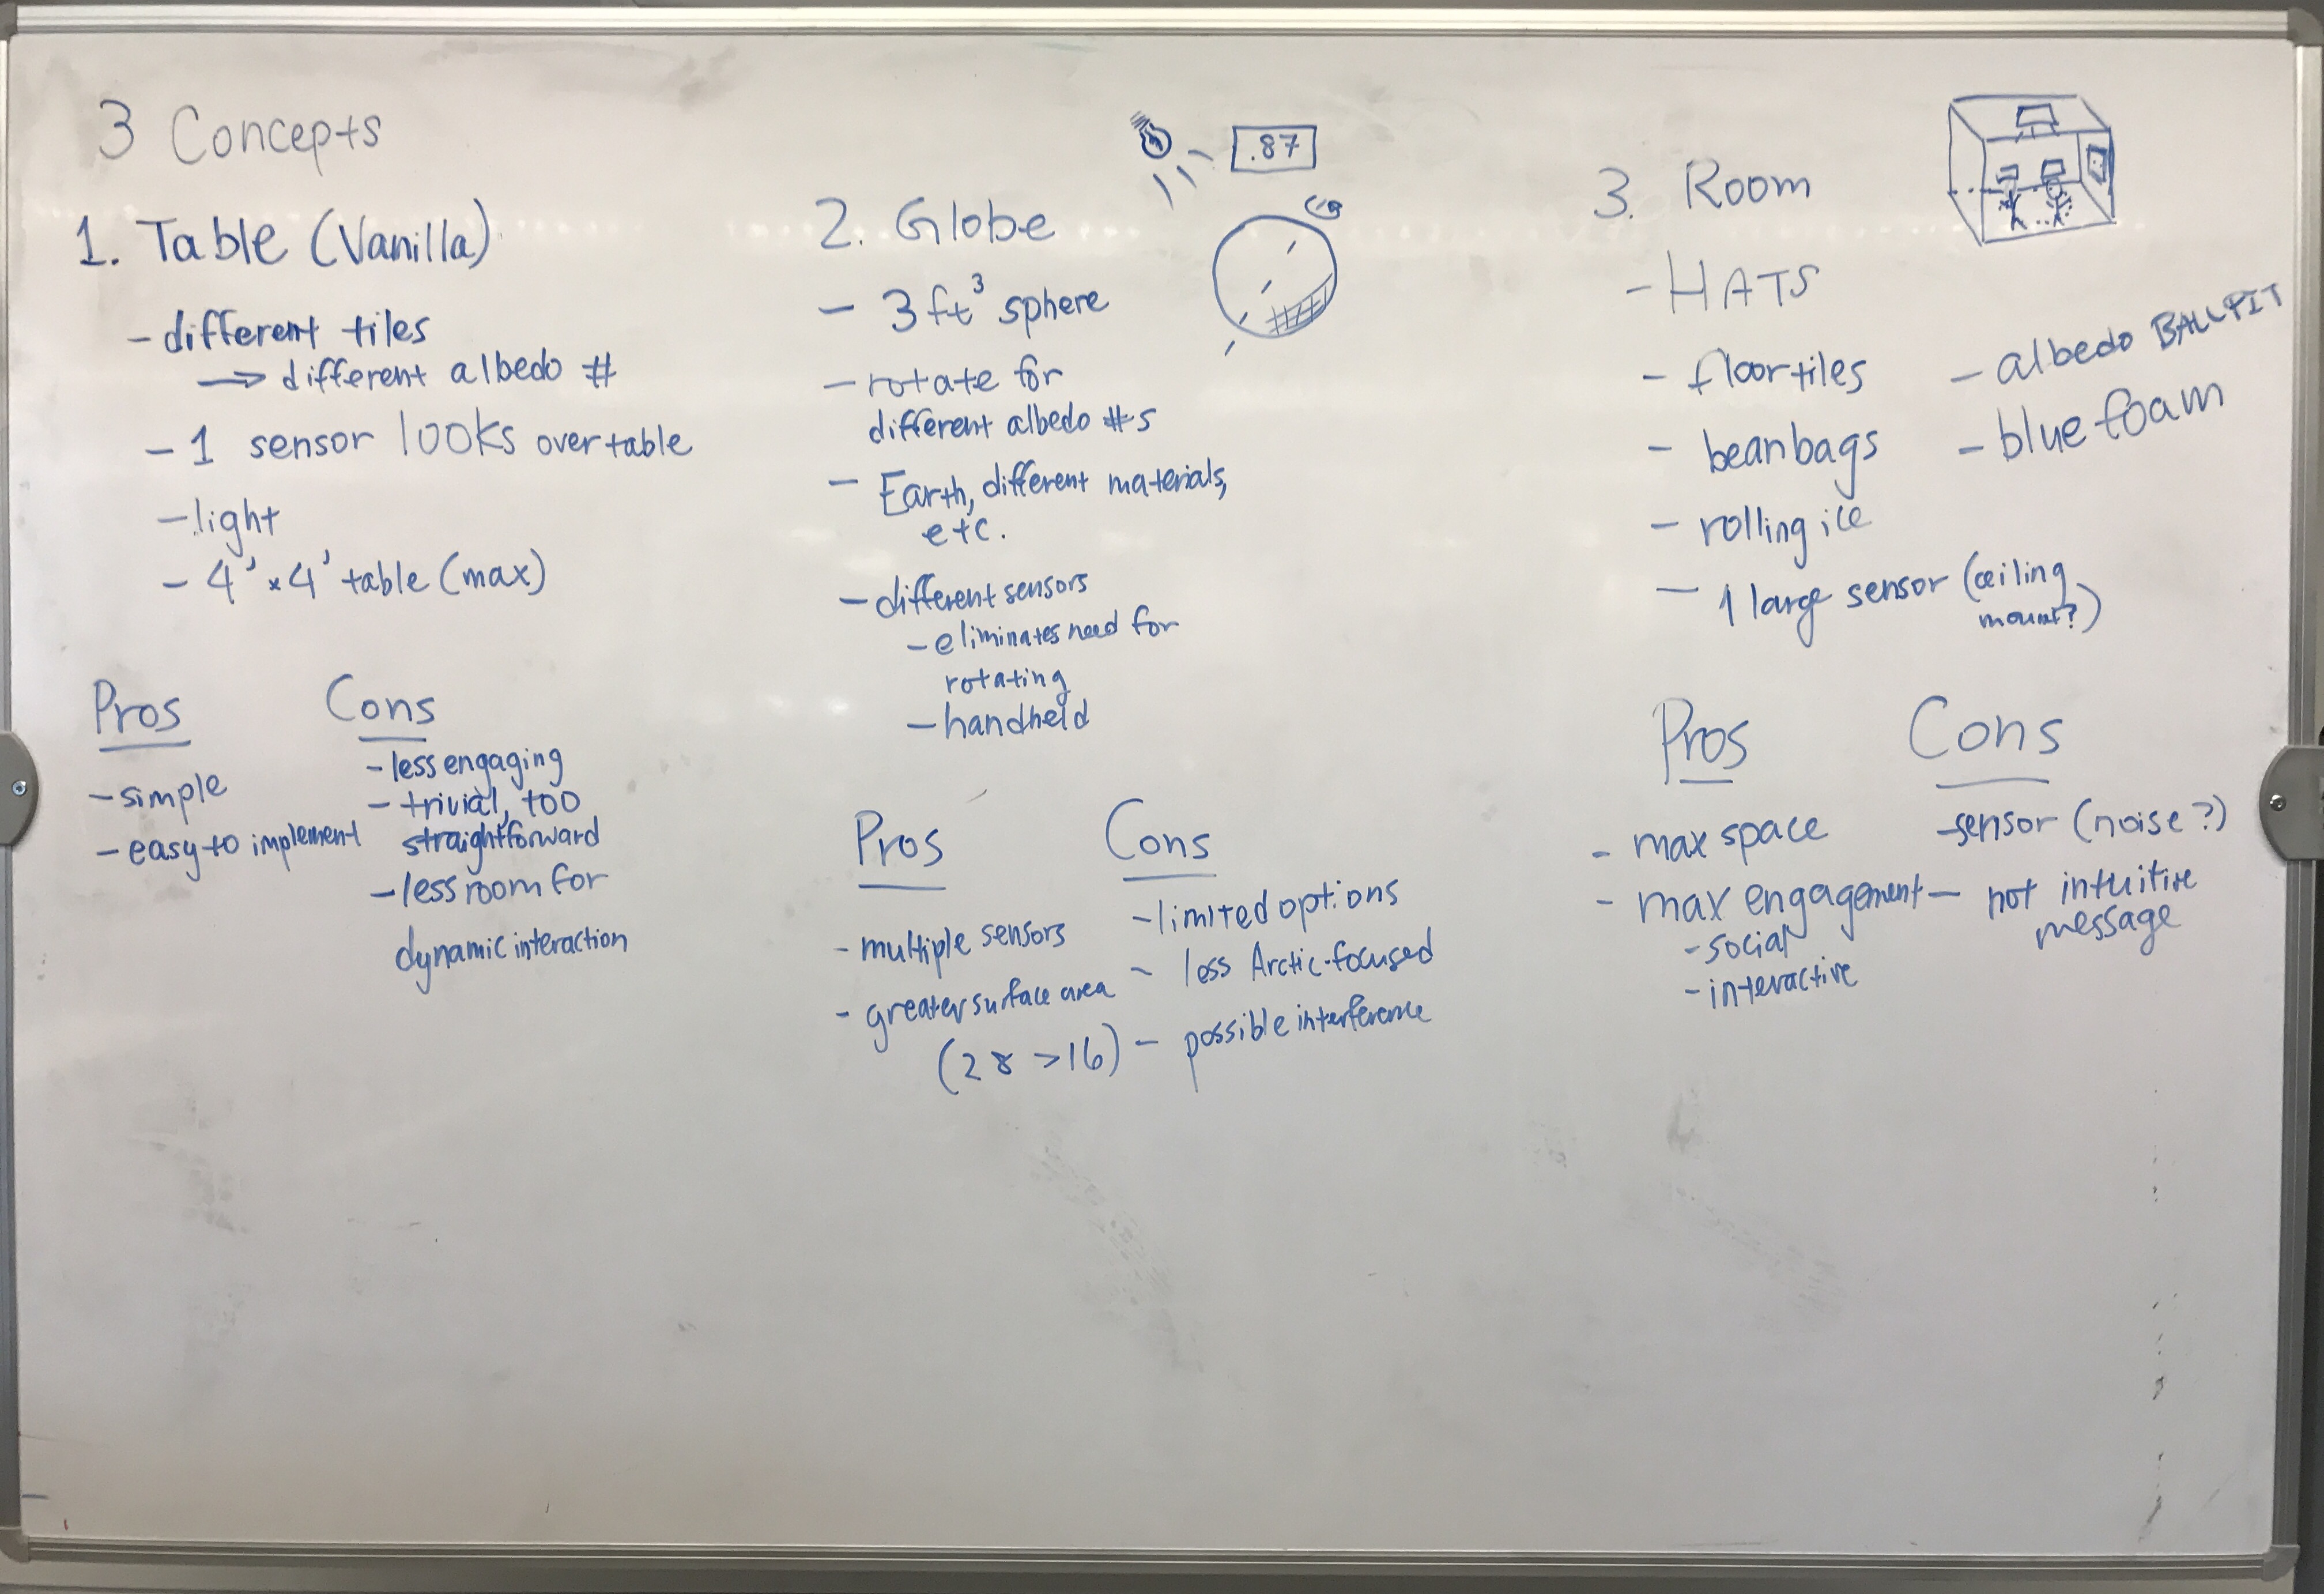 3 Concepts
1. Table (Vanilla)
- different tiles
→ different albedo #
- 1 sensor looks over table
- light
- 4' x 4' table (max)
Pros
- simple
- easy to implement
Cons
- less engaging
- trivial, too
straightforward
- less room for
dynamic interaction
.87
2. Globe
- 3 ft³ sphere
- rotate for
different albedo #s
- Earth, different materials,
etc.
- different sensors
- eliminates need for
rotating
- handheld
Pros
- multiple sensors
- greater surface area
(28 > 16)
Cons
- limited options
- less Arctic-focused
- possible interference
3. Room
- HATS
- floor tiles
- beanbags
- rolling ice
- 1 large sensor (ceiling
mount?)
- albedo BALLPIT
- blue foam
Pros
- max space
- max engagement
- social
- interactive
Cons
- sensor (noise?)
- not intuitive
message